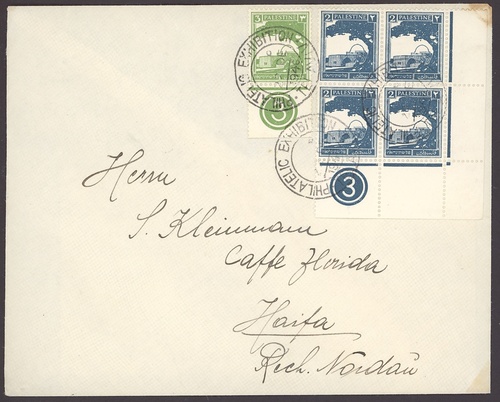 3 PALESTINE ٣
2 PALESTINE ٢
2 PALESTINE ٢
PHILATELIC EXHIBITION
3
2 PALESTINE ٢
2 PALESTINE ٢
PHILATELIC EXHIBITION
3
Herrn
S. Kleinmann
Caffe Florida
Haifa
Rech. Nordau